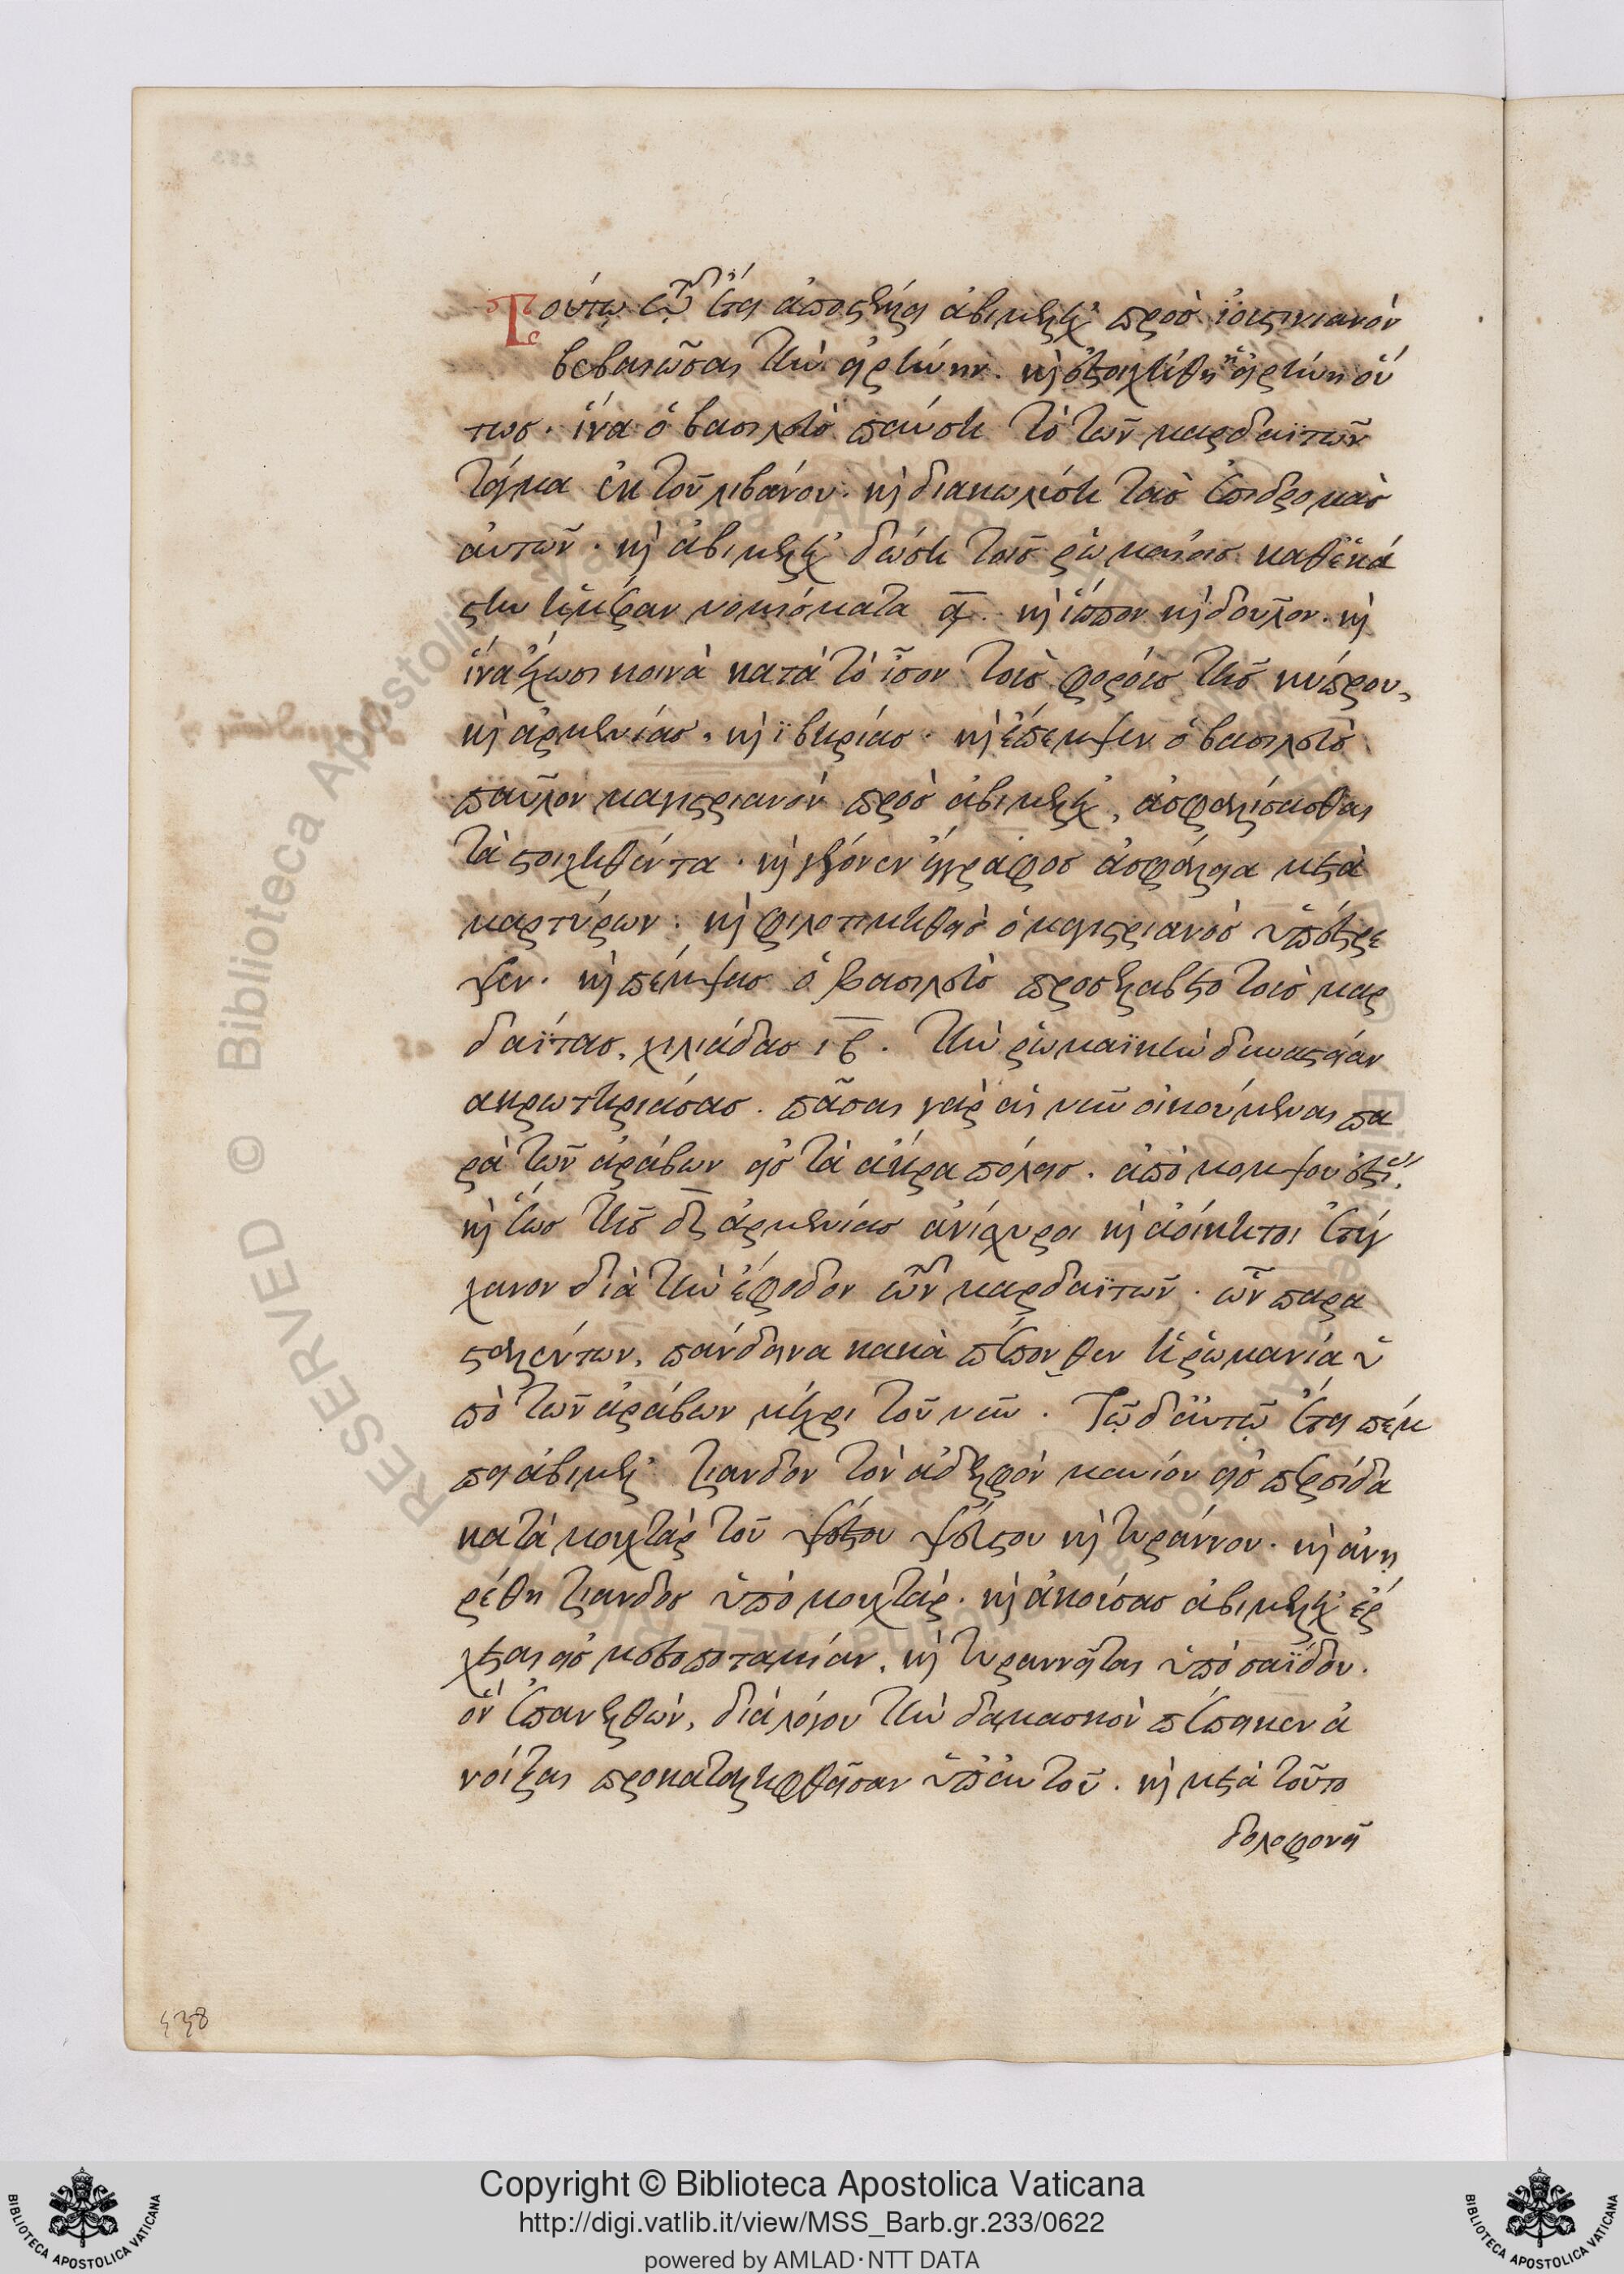 Τούτῳ τῷ δ' ἔτει ἀποστέλλει ἀβιμέλεχ πρὸσ ἰουστινιανὸν
βεβαιῶσαι τὴν εἰρήνην. καὶ ἐστοιχήθη ἡ εἰρήνη οὕ
τωσ. ἵνα ὁ βασιλεὺσ παύσῃ τὸ τῶν μαρδαϊτῶν
τάγμα ἐκ τοῦ λιβάνου. καὶ διακωλύσῃ τὰσ ἐπιδρομὰσ
αὐτῶν. καὶ ἀβιμέλεχ δώσῃ τοῖσ ῥωμαίοισ καθ' ἑκά
στην ἡμέραν νομίσματα ͵α. καὶ ἵππον καὶ δοῦλον. καὶ
ἵνα ἔχωσι κοινὰ κατὰ τὸ ἴσον τοὺσ φόρουσ τῆσ κύπρου,
καὶ ἀρμενίασ, καὶ ϊβηρίασ. καὶ ἔπεμψεν ὁ βασιλεὺσ
παῦλον μαγιστριανὸν πρὸσ ἀβιμέλεχ, ἀσφαλίσασθαι
τὰ στοιχηθέντα. καὶ γέγονεν ἔγγραφοσ ἀσφάλεια μετὰ
μαρτύρων. καὶ φιλοτιμηθεὶσ ὁ μαγιστριανὸσ ὑπέστρε
ψεν. καὶ πέμψασ ὁ βασιλεὺσ προσελάβετο τοὺσ μαρ
δαΐτασ, χιλιάδασ ιβ. τὴν ῥωμαϊκὴν δυναστείαν
ακρωτηριάσασ. πᾶσαι γὰρ αἱ νῦν οἰκούμεναι πα
ρὰ τῶν ἀράβων εἰσ τὰ ἄκρα πόλεισ. ἀπὸ μομψουεστί'
καὶ ἕωσ τῆσ δ ἀρμενίασ ἀνίχυροι καὶ ἀοίκητοι ἐτύγ
χανον διὰ τὴν ἔφοδον τῶν μαρδαϊτῶν. ὧν παρα
σταλέντων, πάνδεινα κακὰ πέπονθεν ἡ ῥωμανία ὑ
πὸ τῶν ἀράβων μέχρι τοῦ νῦν. Τῷ δ' αὐτῷ ἔτει πέμ
πει ἀβιμέλεχ ζιανδον τὸν ἀδελφὸν μαυίου εἰσ περσίδα
κατὰ μουχτὰρ τοῦ ψεύστου καὶ τυράννου. καὶ ἀνῃ
ρέθη ζιανδοσ ὑπὸ μουχτὰρ. καὶ ἀκούσασ ἀβιμέλεχ ἔρ
χεται εἰσ μεσοποταμίαν, καὶ τυραννεῖται ὑπὸ σαΐδου.
ὃν ἐπανελθὼν, διὰ λόγου τὴν δαμασκὸν πέπεικεν ἀ
νοῖξαι προκαταληφθεῖσαν ὑπ' αὐτοῦ. καὶ μετὰ τοῦτο
δολοφονεῖ
538
Copyright © Biblioteca Apostolica Vaticana
http://digi.vatlib.it/view/MSS_Barb.gr.233/0622
powered by AMLAD·NTT DATA